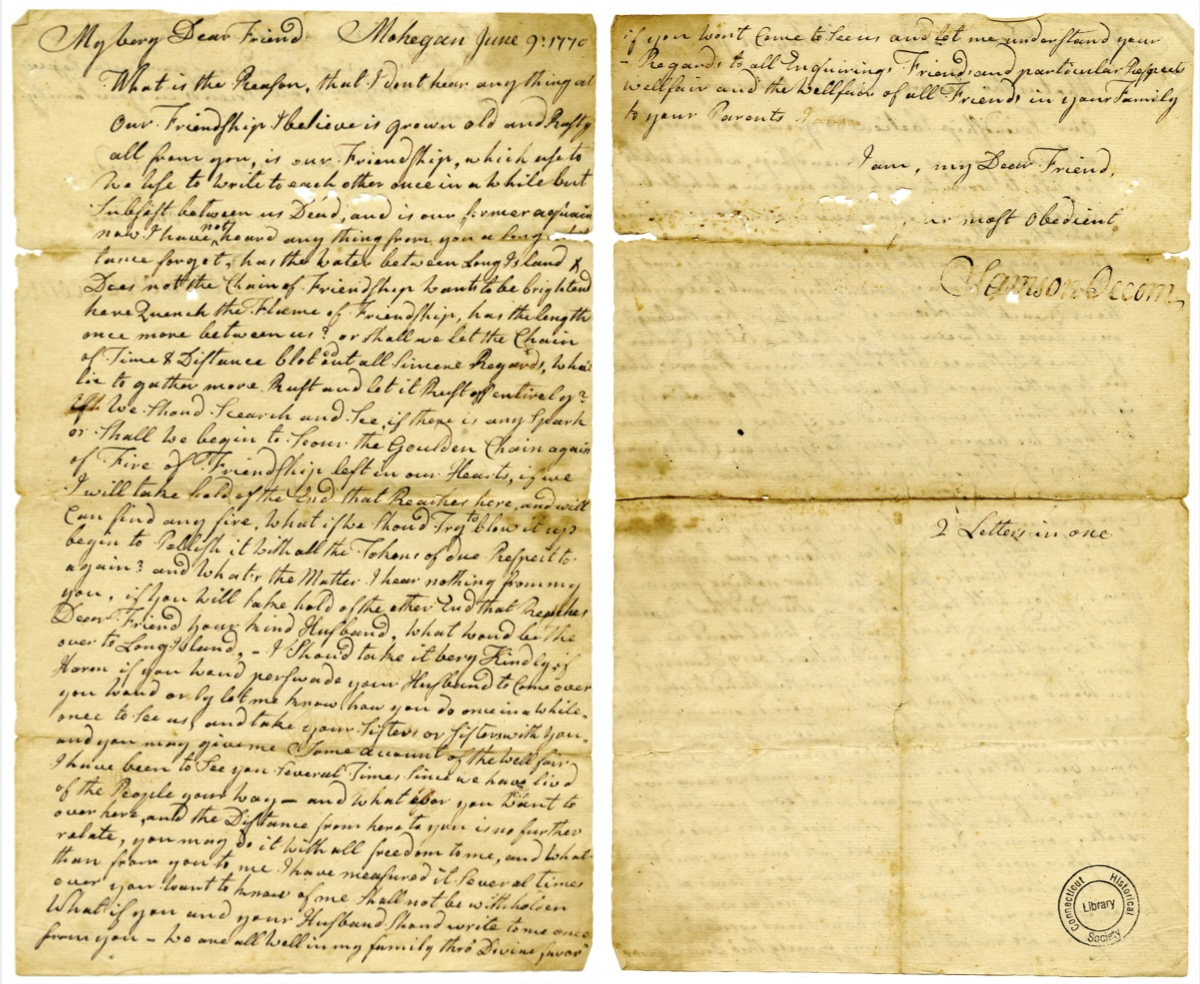 My very Dear Friend Mohegan June 9: 1770
What is the Reason, that I dont hear any thing at
Our Friendship I believe is grown old and Rusty
all from you, is our Friendship, which use to
We use to Write to each other once in a while but
Subsist between us Dead, and is our former acquain
now I have not heard any thing from you a long
tance forget, has the water between Long Island &
Does not the Chain of Friendship wants to be brightend
here Quench the Flame of Friendship, has the length
once more between us? or shall we let the Chain
of Time & Distance blot out all Sincere Regards, What
lie to gather more Rust and let it Rust off entirely?
if We Shoud Scearch and See, if there is any Spark
or Shall we begin to Scour the Goulden Chain again
of Fire of Friendship left in our Hearts, if we
I will take hold of the End that Reaches here, and will
Can find any fire, What if we Shoud Try to blow it up
begin to Pollish it With all the Tokens of due Respect to
again? and What's the Matter I hear nothing from my
you, if you Will take hold of the other End that Reaches
Dear Friend your kind Husband, What woud be the
over to Long Island, – I Shoud take it very Kindly if
Harm if you woud perswade your Husband to Come over
you woud only let me know how you do once in a while.
once to See us, and take your Sisters or Sisters with you.
and you may give me Some account of the wellfair
I have been to See you Several Times Since we have livd
of the People your way – and What ever you want to
over here, and the Distance from here to you is no further
relate, you may do it With all freedom to me, and What-
than from you to me I have measured it Several times
ever you Want to know of me Shall not be withholden
What if you and your Husband Shoud write to me once
from you – We are all Well in my family thro' Divine favor
if you won't Come to See us and let me understand your
– Regards to all Enquiring Friends and particular Respects
wellfair and the wellfair of all Friends in your Family
to your Parents
I am, my Dear Friend,
ur most Obedient
Samson Occom
2 Letters in one
Connecticut Historical Society
Library